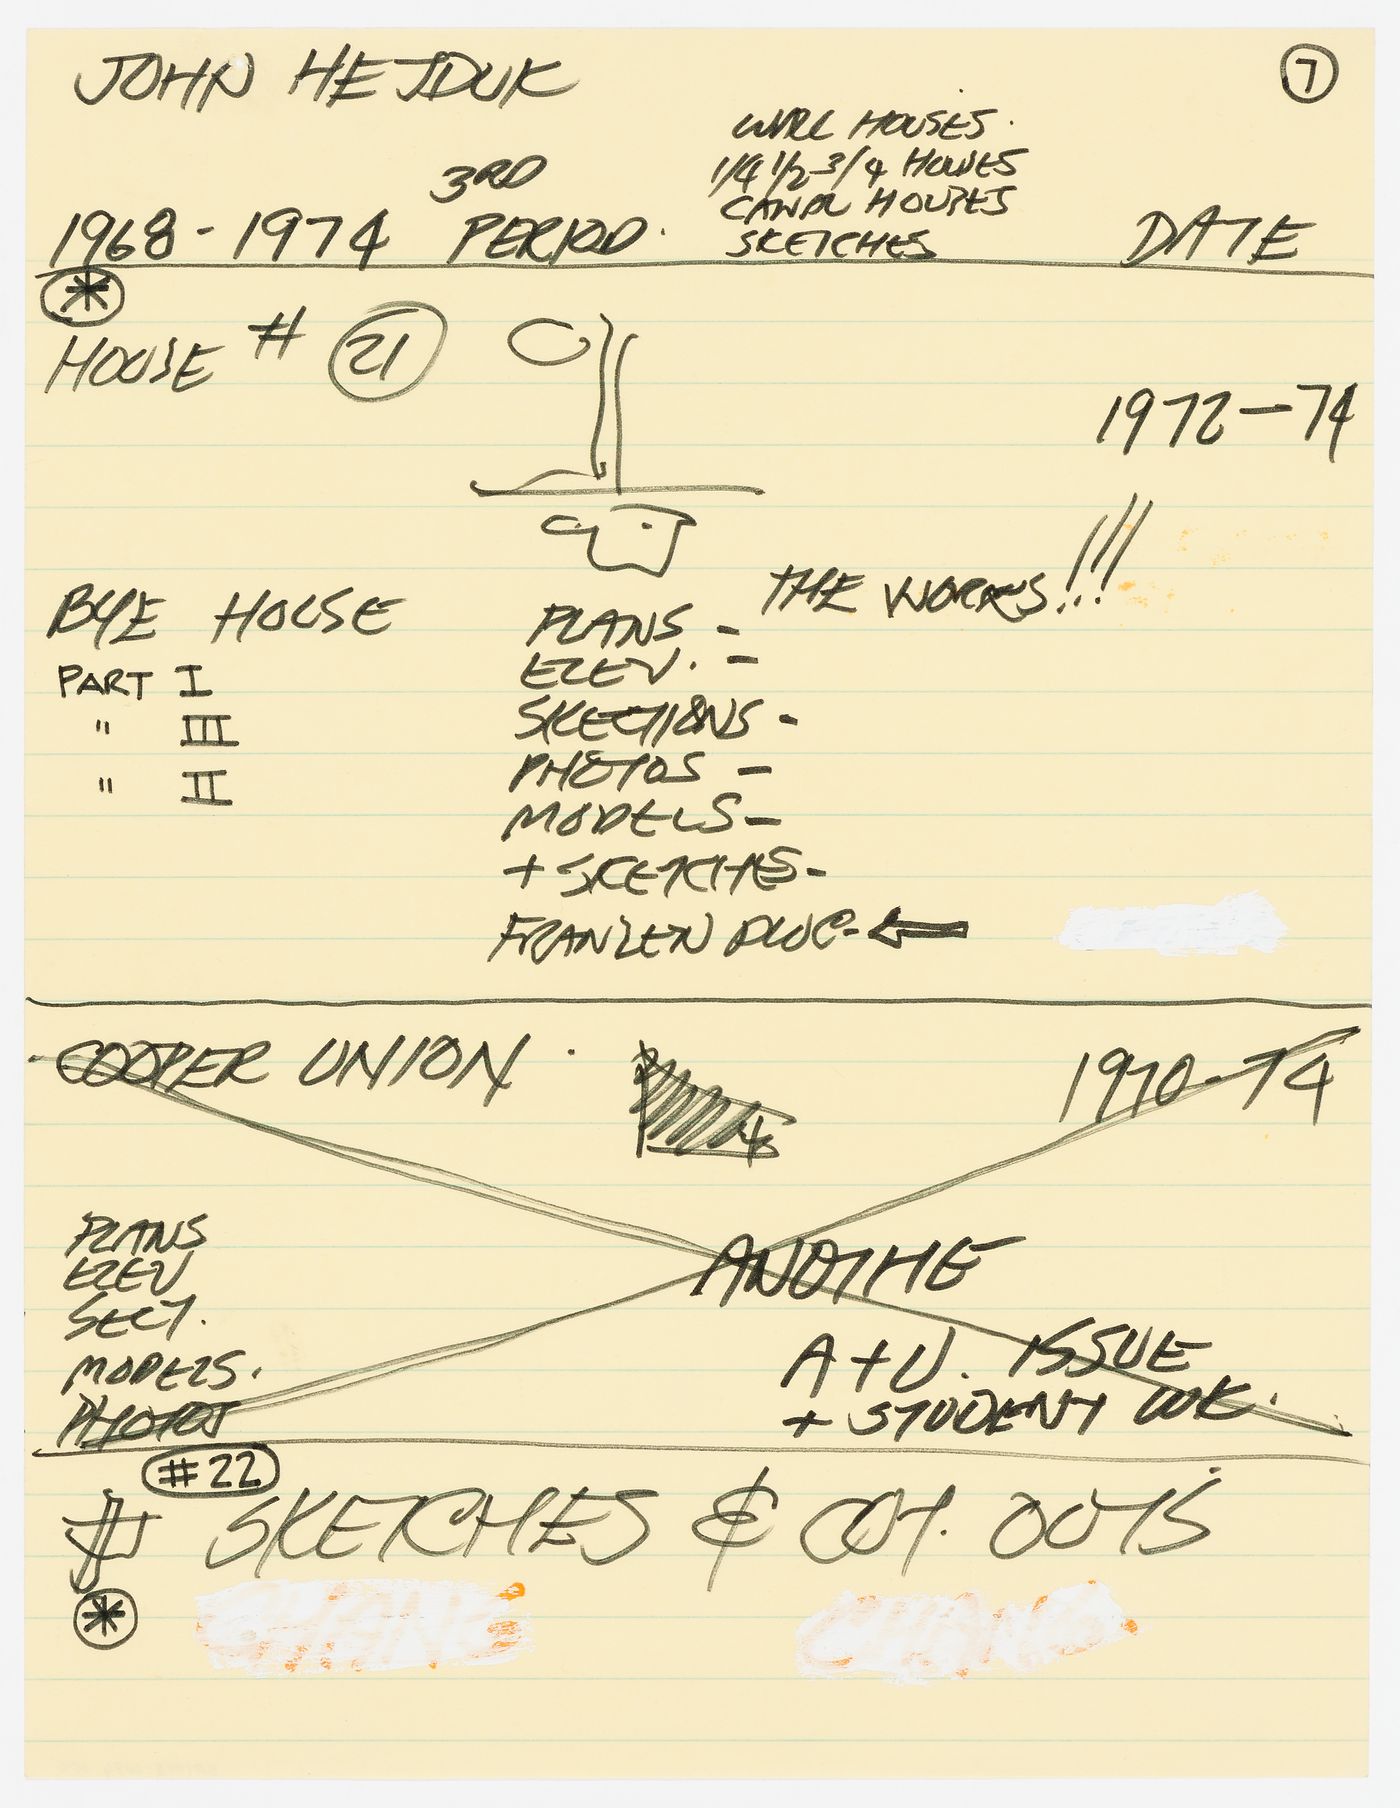 JOHN HEJDUK
7
WALL HOUSES.
1/4 1/2 3/4 HOUSES
CANAL HOUSES
SKETCHES
1968-1974 3RD PERIOD.
DATE
*
HOUSE # 21
1972-74
THE WORKS!!!
BYE HOUSE
PART I
" III
" II
PLANS -
ELEV. -
SKECTIONS -
PHOTOS -
MODELS -
+ SKETCHES -
FRANZEN
COOPER UNION.
1970-74
PLANS
ELEV
SECT.
MODELS.
PHOTOS
ANOTHE
A+U. ISSUE
+ STUDENT WK.
#22
SKETCHES & CUT. OUTS
*